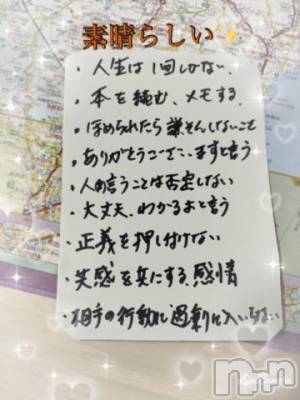 素晴らしい✨
・人生は1回しかない.
・本を読む、メモする.
・ほめられたら謙そんしないこと
・ありがとうございますと言う
・人の言うことは否定しない
・大丈夫、わかるよと言う
・正義を押しつけない
・実感を共にする、感情
・相手の行動に過剰に入らない